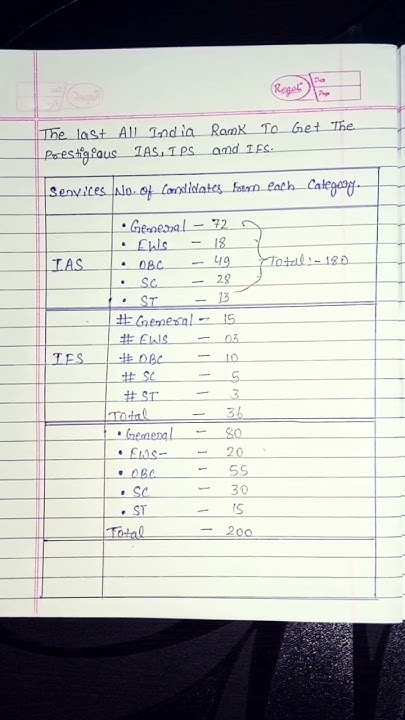 Regal
The last All India Rank To Get The
Prestigious IAS, IPS and IFS.
Services No. of Candidates from each Category.
• General - 72
• EWS - 18
IAS • OBC - 49 Total:- 180
• SC - 28
• ST - 13
# General - 15
# EWS - 03
IFS # OBC - 10
# SC - 5
# ST - 3
Total - 36
• General - 80
• EWS - 20
• OBC - 55
• SC - 30
• ST - 15
Total - 200